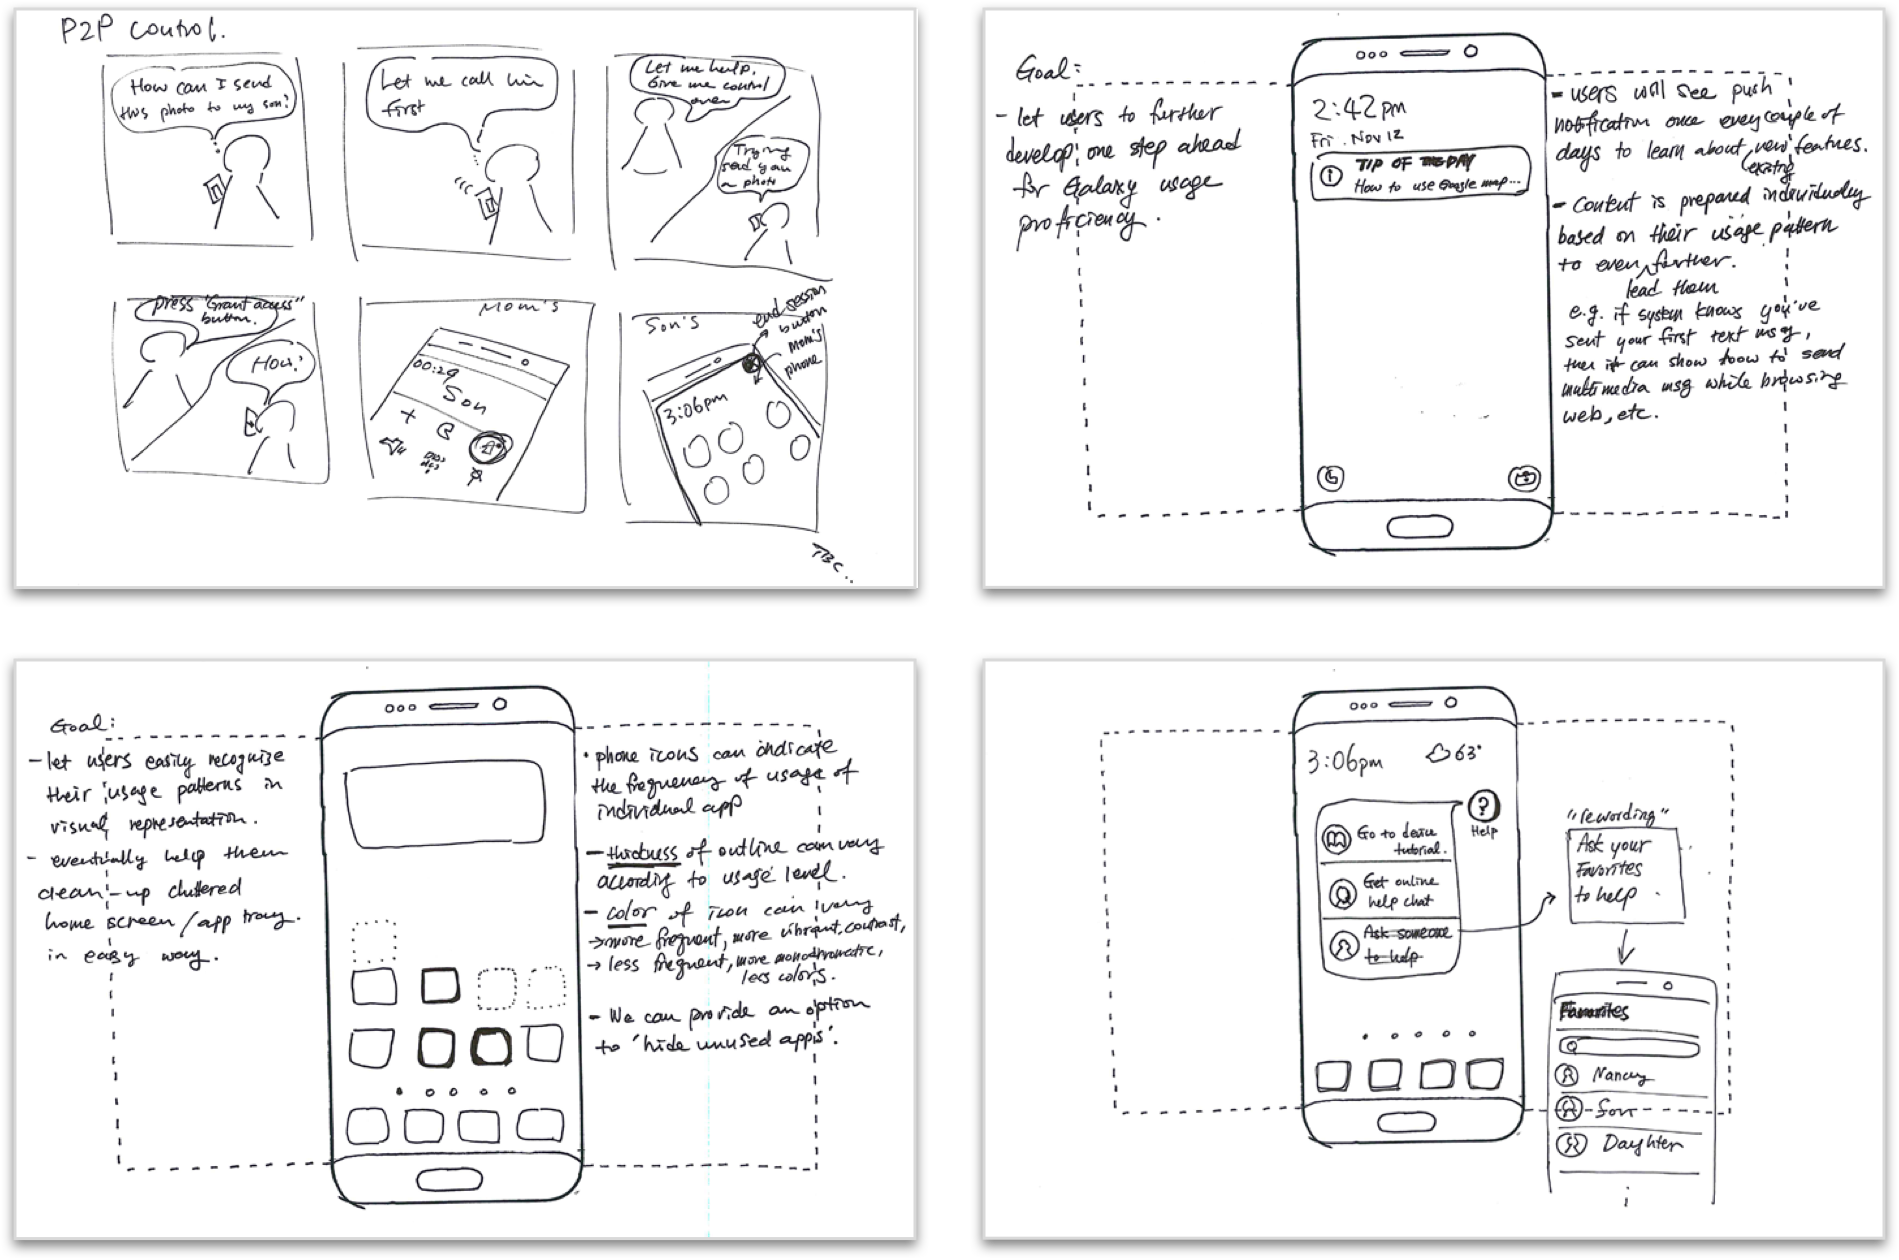 P2P control.
How can I send
this photo to my son?
Let me call him
first
Let me help.
Give me control
over
Trying
send you
a photo
press "Grant access"
button.
How?
Mom's
00:29
Son
Son's
end session
button
Mom's
phone
3:06pm
TBC..
Goal:
- let users to further
develop, one step ahead
for Galaxy usage
proficiency.
2:42pm
Fri. Nov 12
TIP OF THE DAY
How to use Google map...
- users will see push
notification once every couple of
days to learn about new features.
existing
- Content is prepared individually
based on their usage pattern
to even further.
lead them
e.g. if system knows you've
sent your first text msg,
then it can show how to send
multimedia msg while browsing
web, etc.
Goal:
- let users easily recognize
their usage patterns in
visual representation.
- eventually help them
clean-up cluttered
home screen/app tray.
in easy way.
• phone icons can indicate
the frequency of usage of
individual app
- thickness of outline can vary
according to usage level.
- color of icon can vary
→ more frequent, more vibrant, contrast,
→ less frequent, more monochromatic,
less colors.
- We can provide an option
to 'hide unused apps'.
3:06pm
63°
?
Help
Go to device
tutorial.
Get online
help chat
Ask someone
to help
"rewording"
Ask your
Favorites
to help
Favorites
Nancy
Son
Daughter